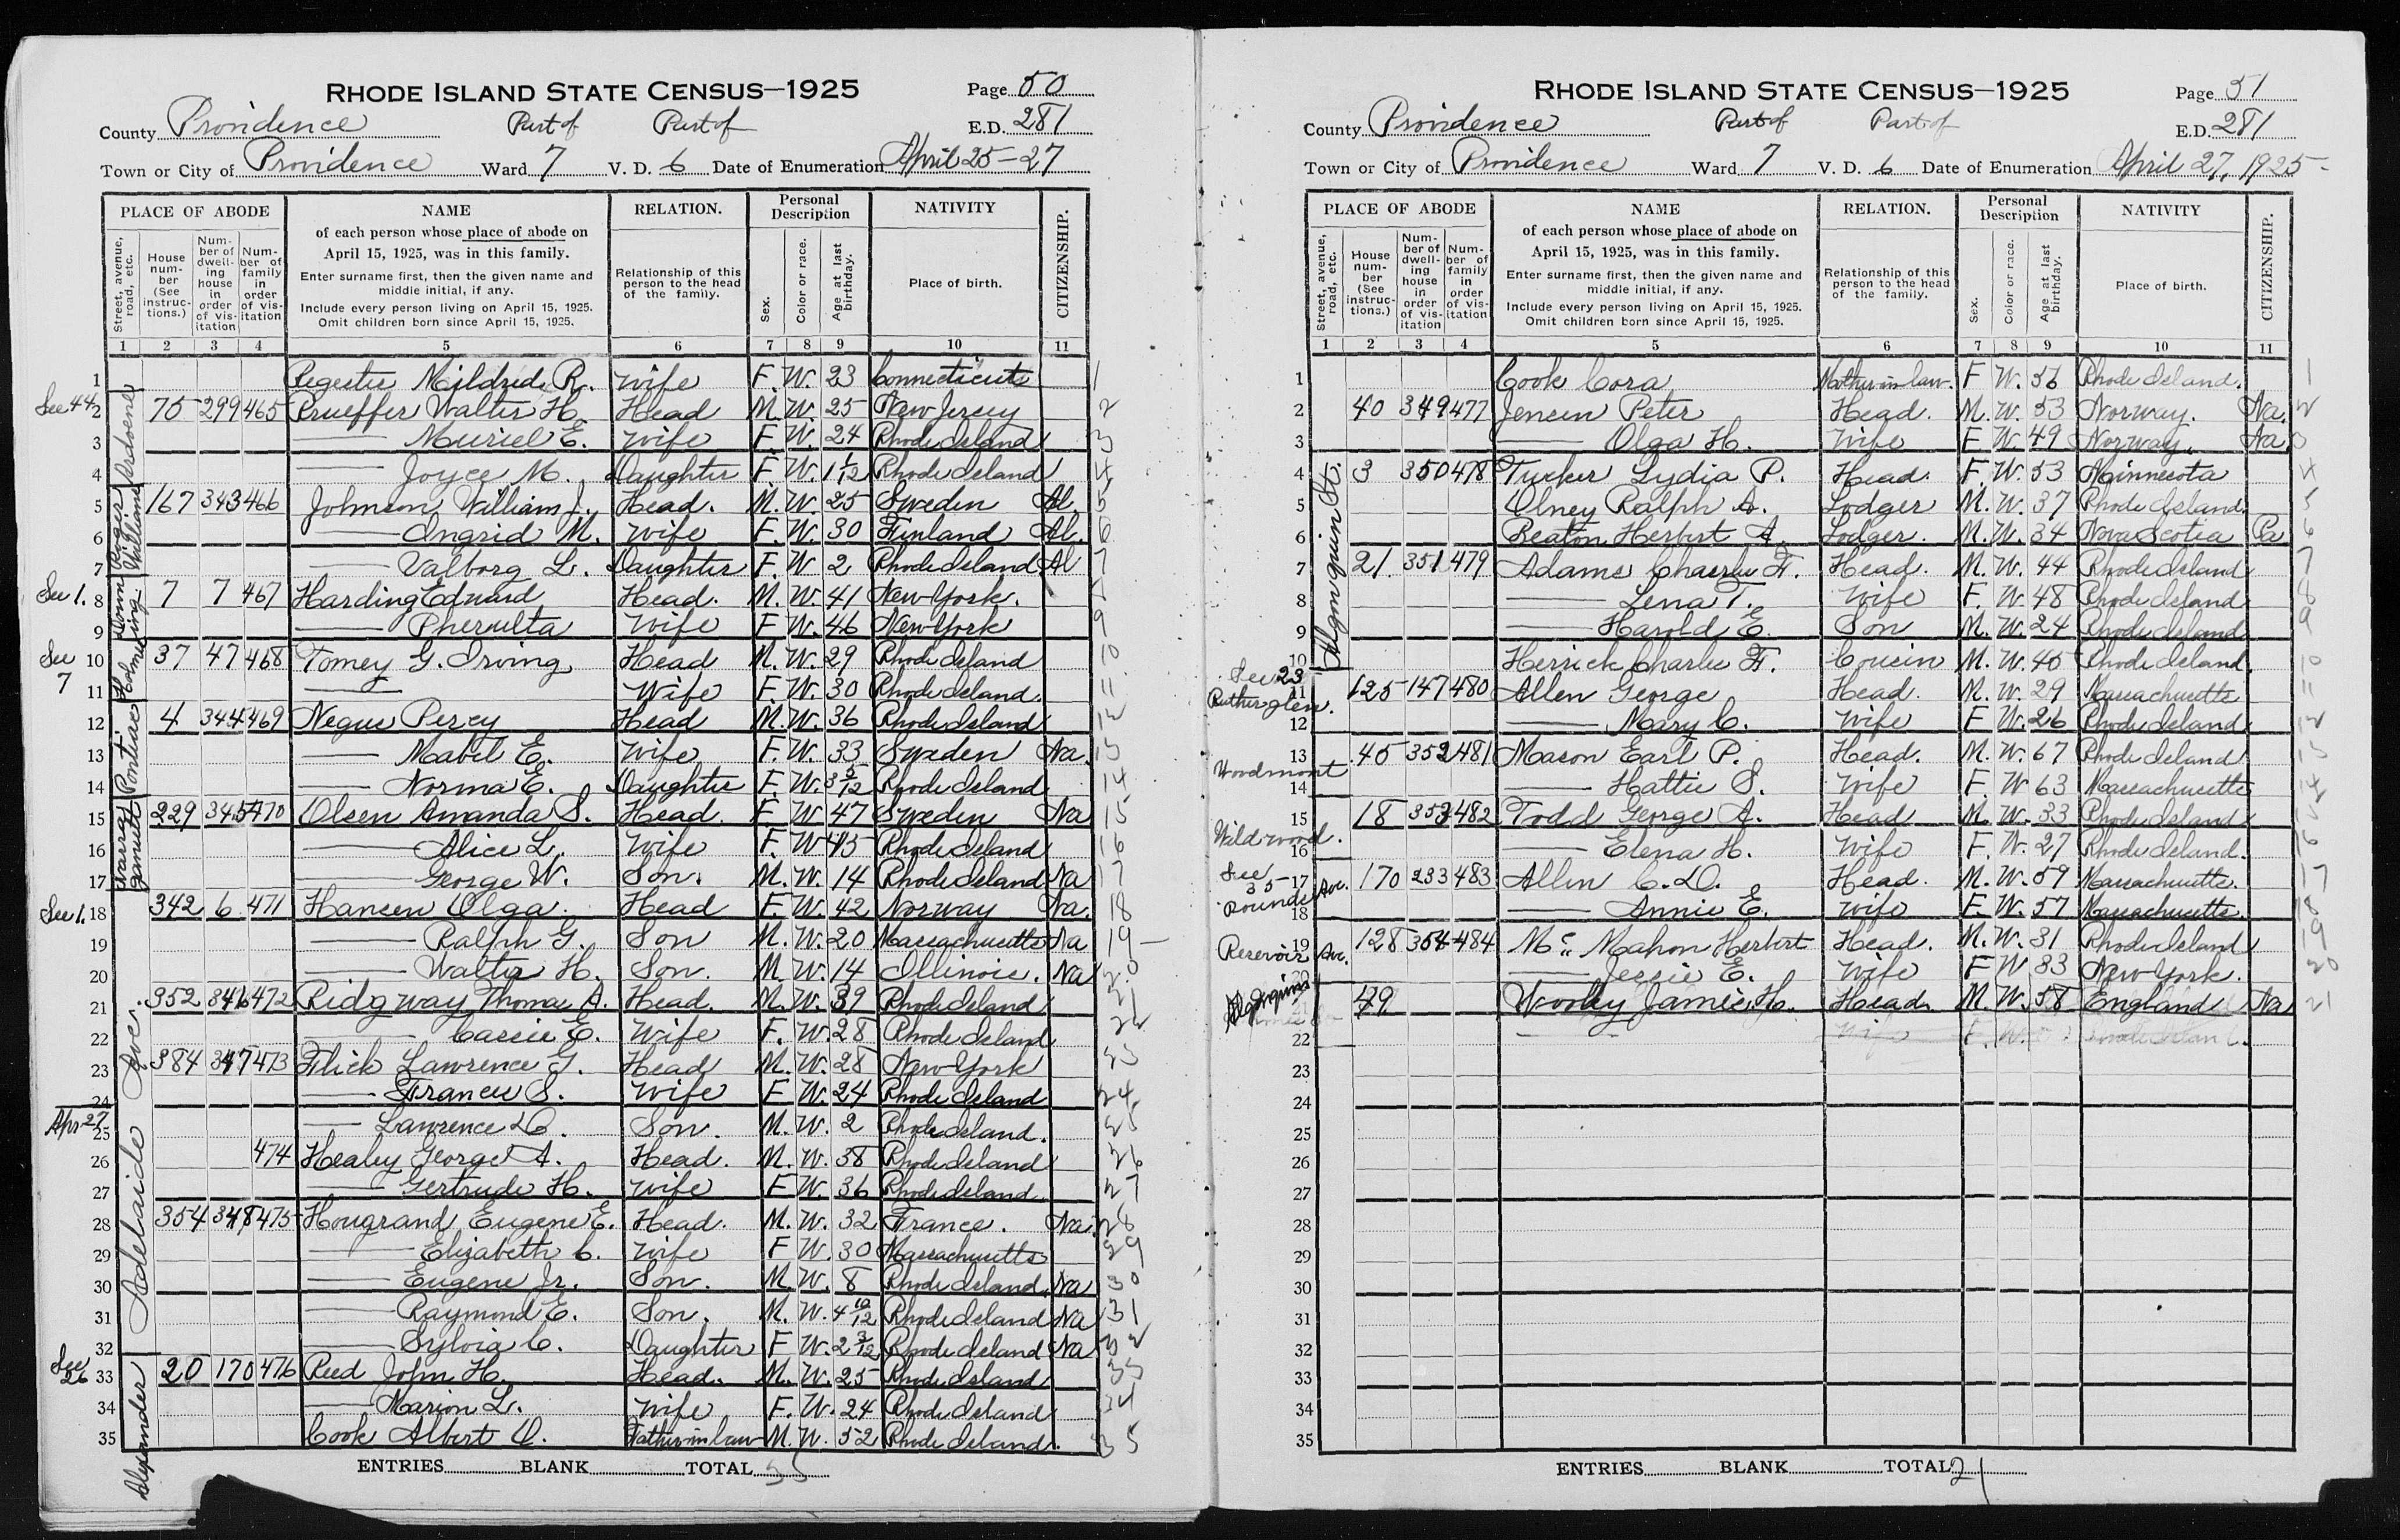 RHODE ISLAND STATE CENSUS—1925
Page 50
County Providence Part of Part of E.D. 281
Town or City of Providence Ward 7 V. D. 6 Date of Enumeration April 25-27
PLACE OF ABODE
NAME
of each person whose place of abode on
April 15, 1925, was in this family.
Enter surname first, then the given name and
middle initial, if any.
Include every person living on April 15, 1925.
Omit children born since April 15, 1925.
RELATION.
Relationship of this
person to the head
of the family.
Personal
Description
NATIVITY
Place of birth.
CITIZENSHIP.
Street, avenue,
road, etc.
House
num-
ber
(See
instruc-
tions.)
Num-
ber of
dwell-
ing
house
in
order
of vis-
itation
Num-
ber of
family
in
order
of vis-
itation
Sex.
Color or race.
Age at last
birthday.
1 2 3 4 5 6 7 8 9 10 11
1 Mildred R. Wife F. W. 23 Connecticut 1
See 44 2 75 299 465 Prueffer Walter H. Head M. W. 25 New Jersey 2
3 — Muriel E. Wife F. W. 24 Rhode Island 3
4 — Joyce M. Daughter F. W. 1 1/12 Rhode Island 4
5 167 343 466 Johnson William J. Head. M. W. 25 Sweden Al. 5
6 — Ingrid M. Wife F. W. 30 Finland Al. 6
7 — Valborg L. Daughter F. W 2 Rhode Island Al 7
See 1. 8 7 7 467 Harding Edward Head. M. W. 41 New York. 8
9 — Wife F W. 46 New York 9
See 7 10 37 47 468 Tomey G. Irving Head M. W. 29 Rhode Island 10
11 — Wife F. W. 30 Rhode Island. 11
12 4 344 469 Negus Percy Head M. W. 36 Rhode Island 12
13 — Mabel E. Wife F. W. 33 Sweden Na. 13
14 — Norma E. Daughter F. W. 3 5/12 Rhode Island 14
15 229 345 470 Olsen Amanda S. Head. F. W 47 Sweden Na 15
16 — Alice L. Wife F. W 15 Rhode Island 16
17 — George W. Son. M. W. 14 Rhode Island Na 17
See 1. 18 342 6 471 Hansen Olga. Head F. W. 42 Norway Na. 18
19 — Ralph G. Son M. W. 20 Massachusetts Na 19 –
20 — Walter H. Son. M W. 14 Illinois. Na 20
21 352 346 472 Ridgway Thomas A. Head. M. W. 39 Rhode Island 21
22 — Cassie E. Wife F. W. 28 Rhode Island 22
23 384 347 473 Flick Lawrence G. Head M. W. 28 New York 23
24 — Frances S. Wife F W. 24 Rhode Island 24
Apr 27 25 — Lawrence D. Son. M. W. 2 Rhode Island. 25
26 474 Healey George A. Head. M. W. 38 Rhode Island 26
27 — Gertrude H. Wife F W. 36 Rhode Island. 27
28 354 348 475 Hougrand Eugene E. Head. M. W. 32 France. Na. 28
29 — Elizabeth C. Wife F W. 30 Massachusetts 29
30 — Eugene Jr. Son. M. W. 8 Rhode Island. Na 30
31 — Raymond E. Son. M. W. 4 10/12 Rhode Island Na 31
32 — Sylvia C. Daughter F W. 2 3/12 Rhode Island Na 32
See 26 33 20 170 476 Reed John H. Head. M. W. 25 Rhode Island 33
34 — Marion L. Wife F. W. 24 Rhode Island 34
35 Cook Albert O. Father in law M. W. 52 Rhode Island. 35
Roger Williams
Pontiac
Adelaide Ave.
Alexander
ENTRIES BLANK TOTAL 35
RHODE ISLAND STATE CENSUS—1925
Page 51
County Providence Part of Part of E.D. 281
Town or City of Providence Ward 7 V. D. 6 Date of Enumeration April 27, 1925-
PLACE OF ABODE
NAME
of each person whose place of abode on
April 15, 1925, was in this family.
Enter surname first, then the given name and
middle initial, if any.
Include every person living on April 15, 1925.
Omit children born since April 15, 1925.
RELATION.
Relationship of this
person to the head
of the family.
Personal
Description
NATIVITY
Place of birth.
CITIZENSHIP.
Street, avenue,
road, etc.
House
num-
ber
(See
instruc-
tions.)
Num-
ber of
dwell-
ing
house
in
order
of vis-
itation
Num-
ber of
family
in
order
of vis-
itation
Sex.
Color or race.
Age at last
birthday.
1 2 3 4 5 6 7 8 9 10 11
1 Cook Cora Mother in law. F W. 56 Rhode Island. 1
2 40 349 477 Jensen Peter Head. M. W. 53 Norway. Na. 2
3 — Olga H. Wife F W. 49 Norway. Na. 3
4 3 350 478 Tucker Lydia P. Head. F. W. 53 Minnesota 4
5 Olney Ralph A. Lodger M. W. 37 Rhode Island. 5
6 Beaton Herbert A. Lodger. M. W. 34 Nova Scotia Pa 6
7 21. 351 479 Adams Charles F. Head. M. W. 44 Rhode Island 7
8 — Lena T. Wife F. W. 48 Rhode Island 8
9 — Harold E. Son M. W. 24 Rhode Island 9
10 Herrick Charles F. Cousin M. W. 45 Rhode Island. 10
See 23 11 125 147 480 Allen George Head. M. W. 29 Massachusetts 11
Rutherglen. 12 — Mary C. Wife F W. 26 Rhode Island 12
13 45 352 481 Mason Earl P. Head. M. W. 67 Rhode Island 13
Woodmont 14 — Hattie S. Wife F. W 63 Massachusetts 14
15 18 353 482 Todd George A. Head M. W. 33 Rhode Island 15
Wildwood. 16 — Elena H. Wife F. W. 27 Rhode Island. 16
See 35 17 Ave. 170 233 483 Allen C. D. Head. M. W. 59 Massachusetts. 17
18 — Annie E. Wife F. W. 57 Massachusetts. 18
Reservoir 19 Ave. 128 354 484 Mc Mahon Herbert Head. M. W. 31 Rhode Island 19
20 — Jessie E. Wife F W 33 New York. 20
Algonquin 21 49 James H. Head M. W. 58 England Na 21
22 — Wife F. W. Rhode Island.
23
24
25
26
27
28
29
30
31
32
33
34
35
Algonquin St.
ENTRIES BLANK TOTAL 21